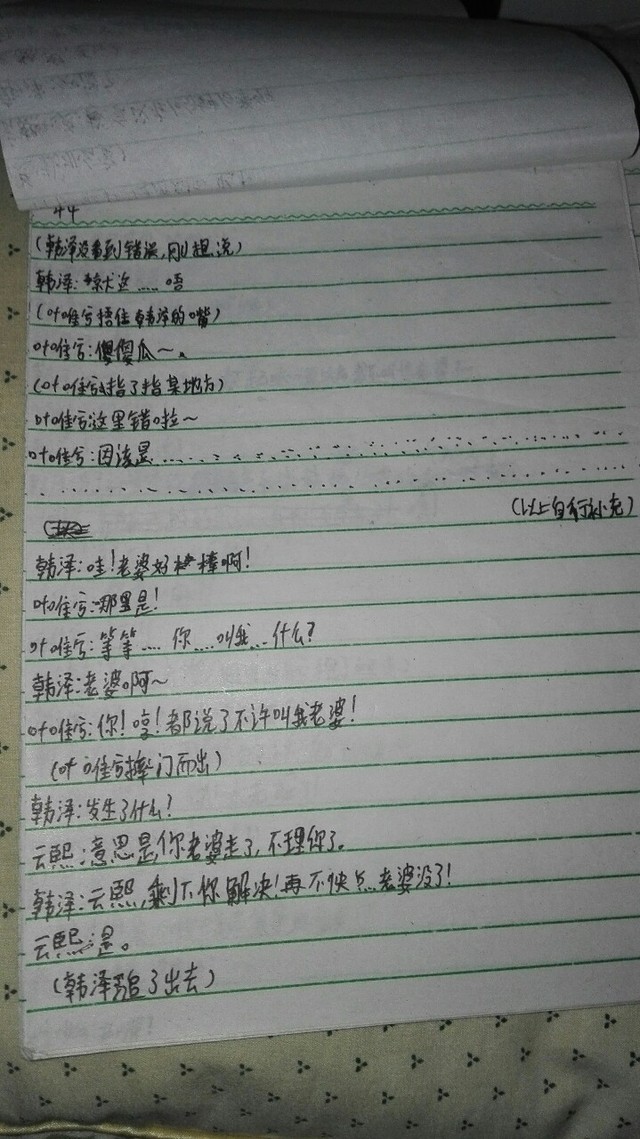 44
(韩泽没看到错误,刚想说)
韩泽:……唔
(叶唯兮捂住韩泽的嘴)
叶唯兮:傻傻瓜~。
(叶唯兮指了指某地方)
叶唯兮:这里错啦~
叶唯兮:因该是……
(以上自行补充)
韩泽:哇!老婆好棒啊!
叶唯兮:哪里是!
叶唯兮:等等……你……叫我……什么?
韩泽:老婆啊~
叶唯兮:你!哼!都说了不许叫我老婆!
(叶唯兮摔门而出)
韩泽:发生了什么?
云熙:意思是你老婆走了,不理你了。
韩泽:云熙,剩下你解决!再不快点老婆没了!
云熙:是。
(韩泽追了出去)